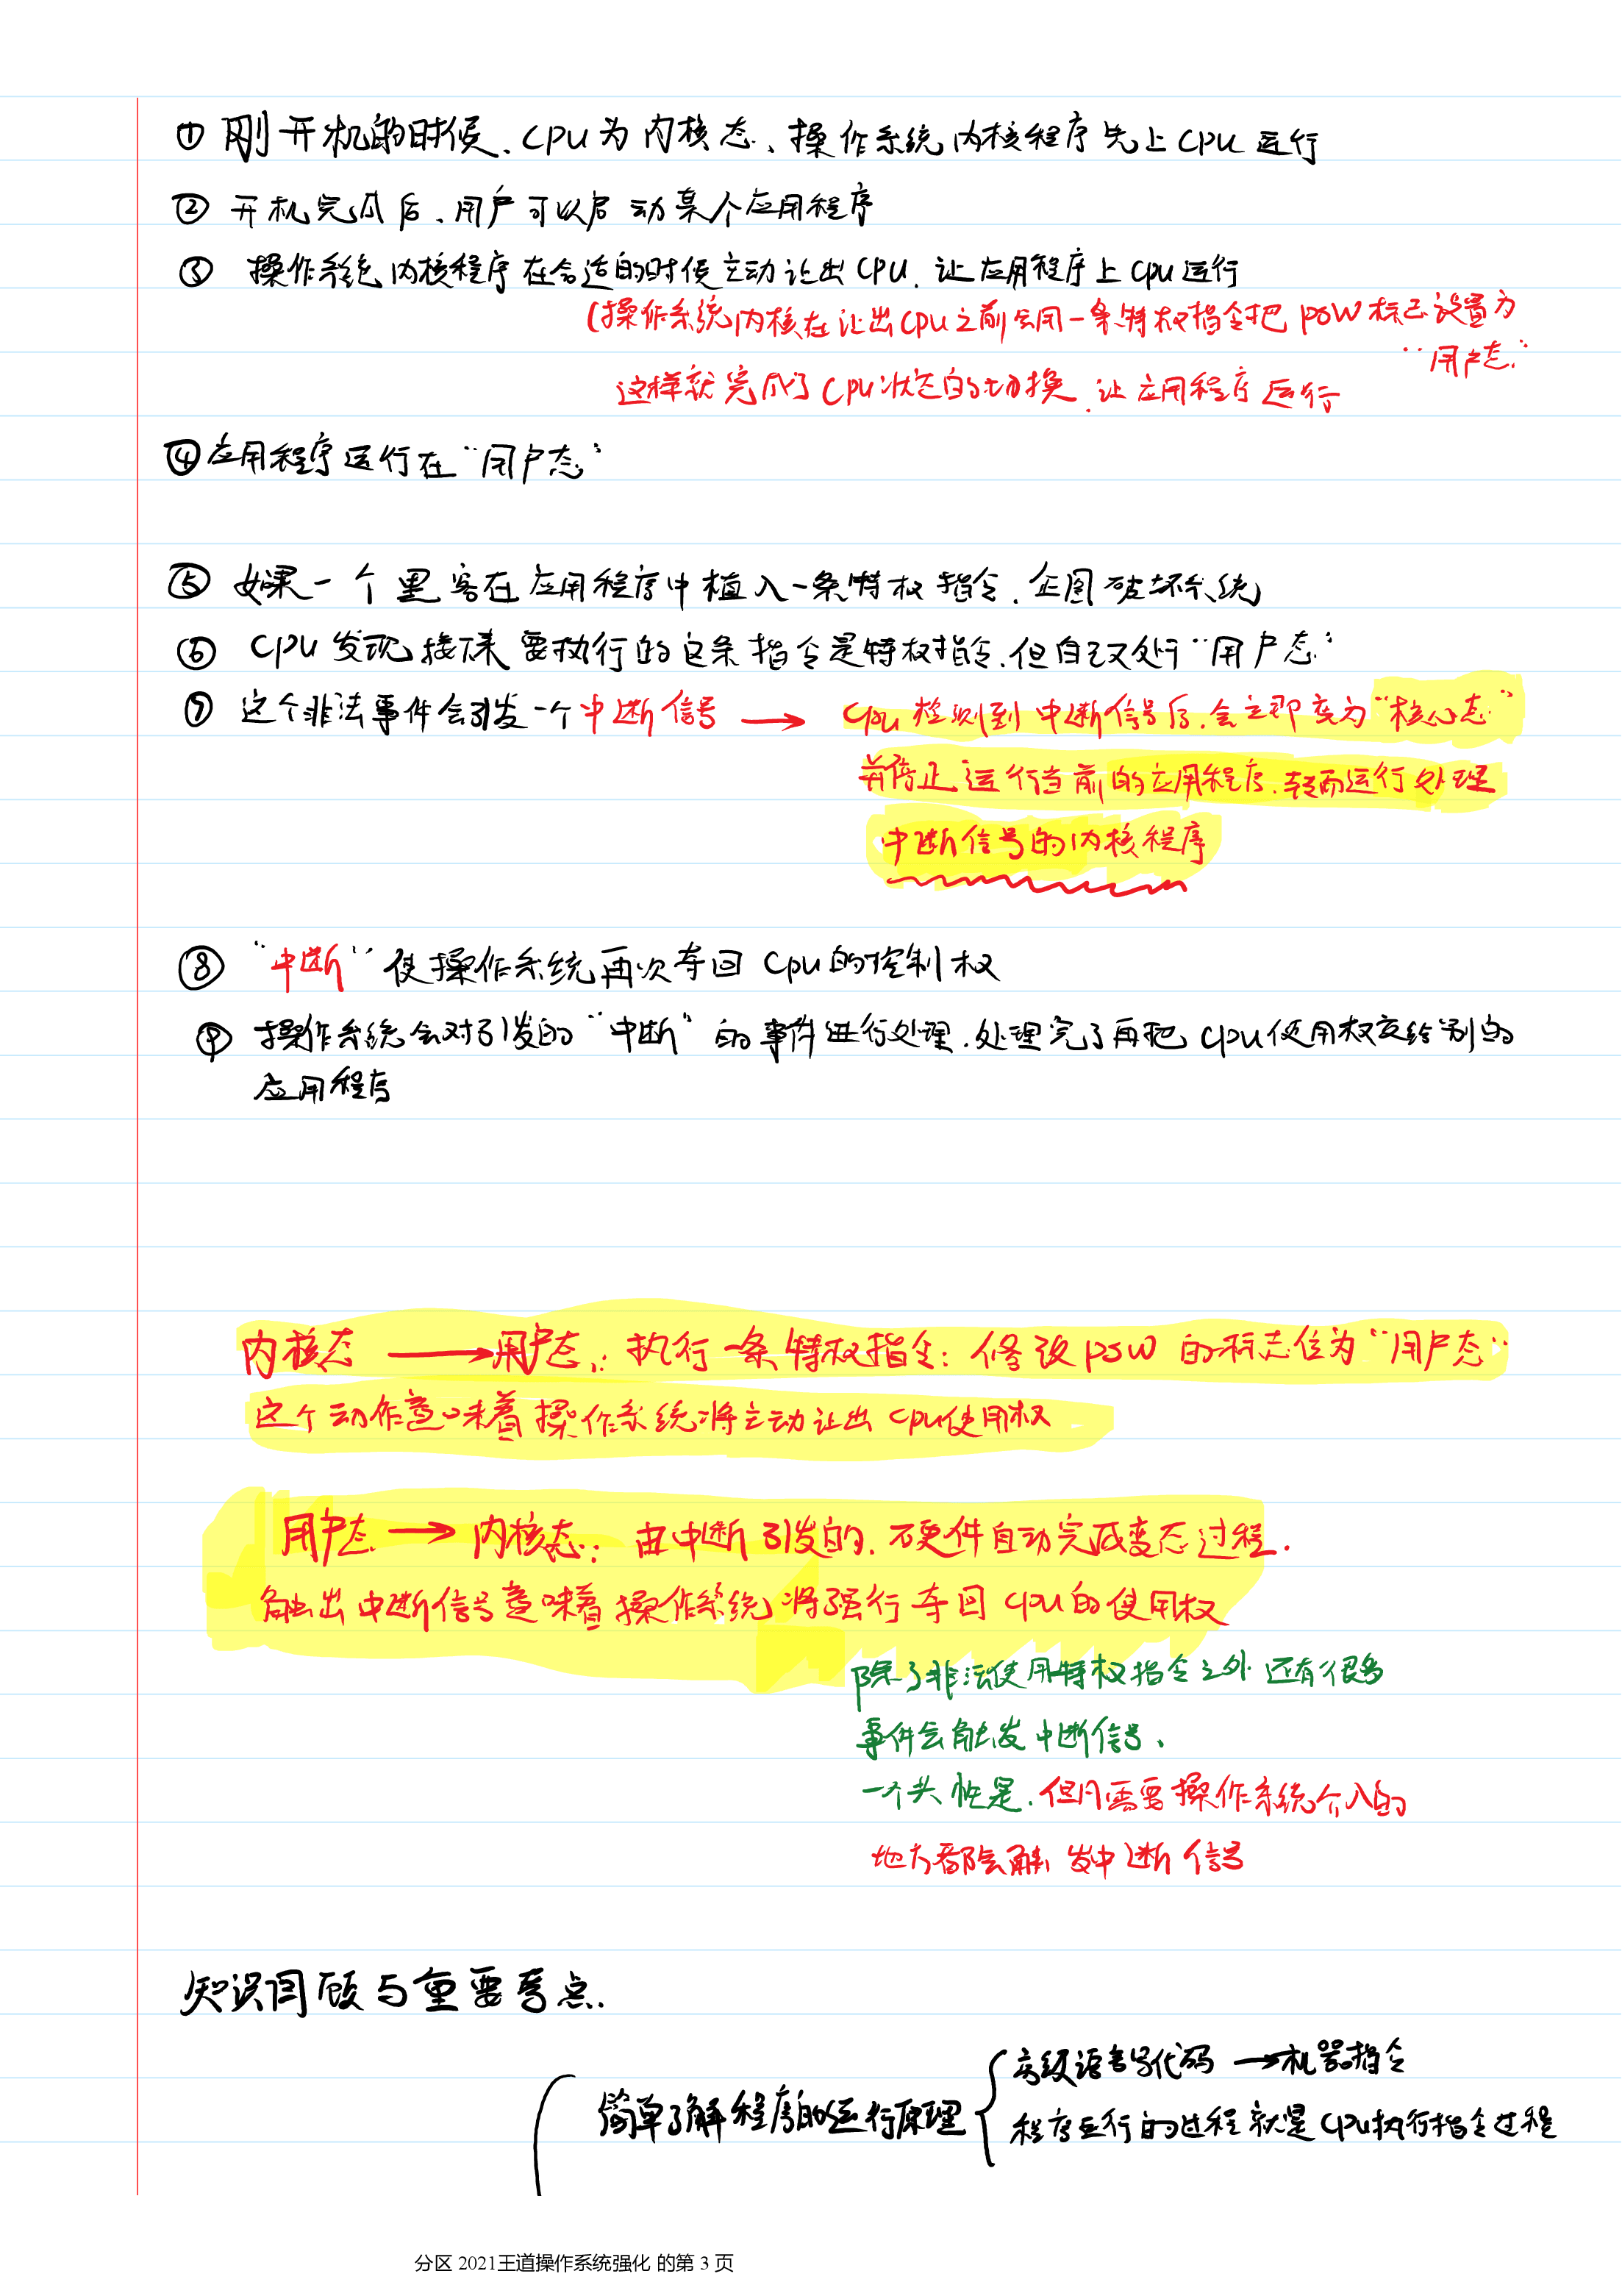 ① 刚开机的时候、CPU为内核态、操作系统内核程序先上CPU运行
② 开机完成后、用户可以启动某个应用程序
③ 操作系统内核程序在合适的时候主动让出CPU.让应用程序上CPU运行
(操作系统内核在让出CPU之前会用一条特权指令把PSW标志设置为
“用户态”
这样就完成了CPU状态的切换.让应用程序运行
④ 应用程序运行在“用户态”
⑤ 如果一个黑客在应用程序中植入一条特权指令.企图破坏系统
⑥ CPU发现接下来要执行的这条指令是特权指令.但自己又处于“用户态”
⑦ 这个非法事件会引发一个中断信号 → CPU检测到中断信号后.会立即变为“核心态”
并停止运行当前的应用程序.转而运行处理
中断信号的内核程序
⑧ “中断”使操作系统再次夺回CPU的控制权
⑨ 操作系统会对引发的“中断”的事件进行处理.处理完了再把CPU使用权交给别的
应用程序
内核态 → 用户态: 执行一条特权指令: 修改PSW的标志位为“用户态”
这个动作意味着操作系统将主动让出CPU使用权
用户态 → 内核态: 由中断引发的.硬件自动完成变态过程.
触出中断信号意味着操作系统将强行夺回CPU的使用权
除了非法使用特权指令之外还有很多
事件会触发中断信号、
一个共性是.但凡需要操作系统介入的
地方都会触发中断信号
知识回顾与重要考点.
简单了解程序的运行原理
高级语言代码 → 机器指令
程序运行的过程就是CPU执行指令过程
分区 2021王道操作系统强化 的第 3 页